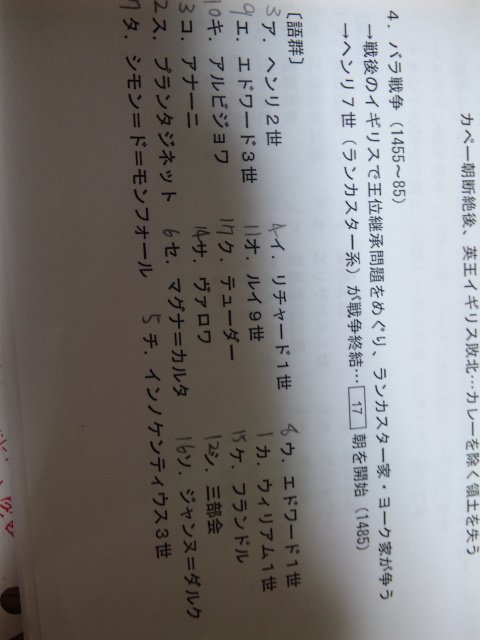 カペー朝断絶後、英王イギリス敗北…カレーを除く領土を失う
4．バラ戦争（1455～85）
→戦後のイギリスで王位継承問題をめぐり、ランカスター家・ヨーク家が争う
→ヘンリ7世（ランカスター系）が戦争終結… 17 朝を開始（1485）
［語群］
3 ア．ヘンリ2世 4 イ．リチャード1世 8 ウ．エドワード1世
9 エ．エドワード3世 11 オ．ルイ9世 1 カ．ウィリアム1世
10 キ．アルビジョワ 17 ク．テューダー 15 ケ．フランドル
3 コ．アナーニ 14 サ．ヴァロワ 12 シ．三部会
2 ス．プランタジネット 6 セ．マグナ＝カルタ 16 ソ．ジャンヌ＝ダルク
7 タ．シモン＝ド＝モンフォール 5 チ．インノケンティウス3世